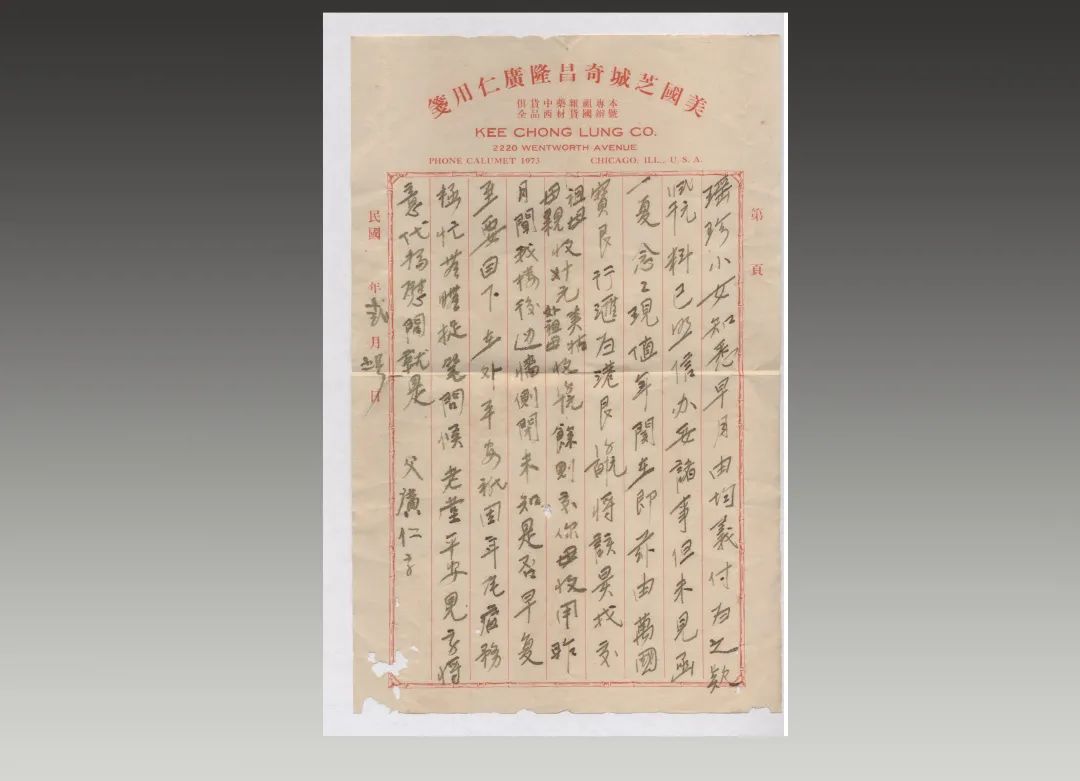 美國芝城奇昌隆廣仁用箋
本號專辦祖國雜貨藥材中西貨品俱全
KEE CHONG LUNG CO.
2220 WENTWORTH AVENUE
PHONE CALUMET 1973 CHICAGO, ILL., U. S. A.
第 頁
瑶珍小女知悉早月由均義付右之款
料已照信办妥諸事但未見函
一夏念念現值年関在即茲由萬國
寶艮行滙右港艮 將該艮找交
祖母 母親收廿元 外祖母收 餘則交你母收用昨
月聞我樓後边墻側聞未知是否早复
至要回下在外平安祇因年尾店務
極忙 提筆問候老堂平安見字將
意代稿慰問就是
父廣仁字
民國 年 貳 月 日